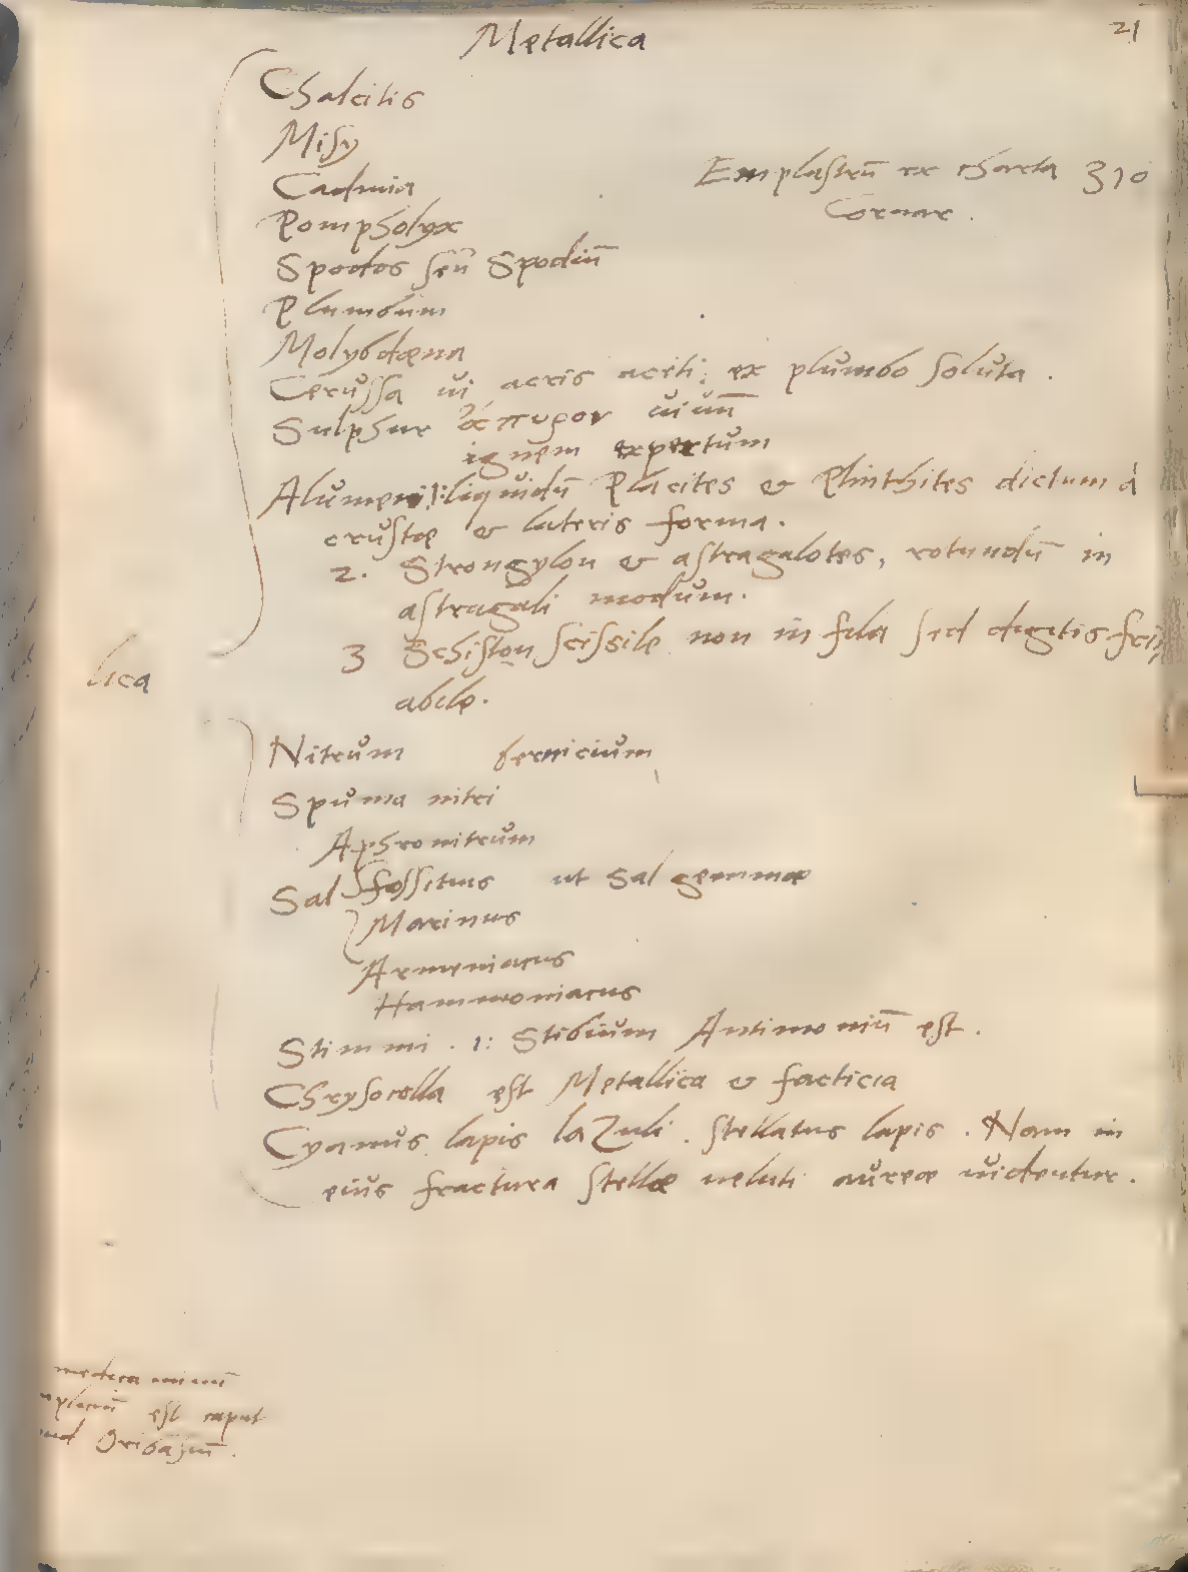 Metallica
21
Chalcitis
Misy
Cadmia
Emplastrū ex charta 310
Cornar.
Pompholyx
Spodos seu Spodiū
Plumbum
Molybdæna
Cerussa ui acris aceti: ex plumbo soluta.
Sulphur ἄπυρον uiuū
ignem expertum
Alumen 1: liquidū Placites & Plinthites dictum à
crustæ & lateris forma.
2. Strongylon & astragalotes, rotundū in
astragali modum.
3 Schiston scissile non in fila sed digitis fri
abile.
lica
Nitrum bernicium
Spuma nitri
Aphronitrum
Sal fossitius ut Sal gemmæ
Marinus
Armeniacus
Hammoniacus
Stimmi. 1: Stibium Antimoniū est.
Chrysocolla est Metallica & facticia
Cyanus lapis laZuli. stellatus lapis. Nam in
eius fractura stellæ ueluti aureæ uidentur.
medica
est caput
Oribasiū.